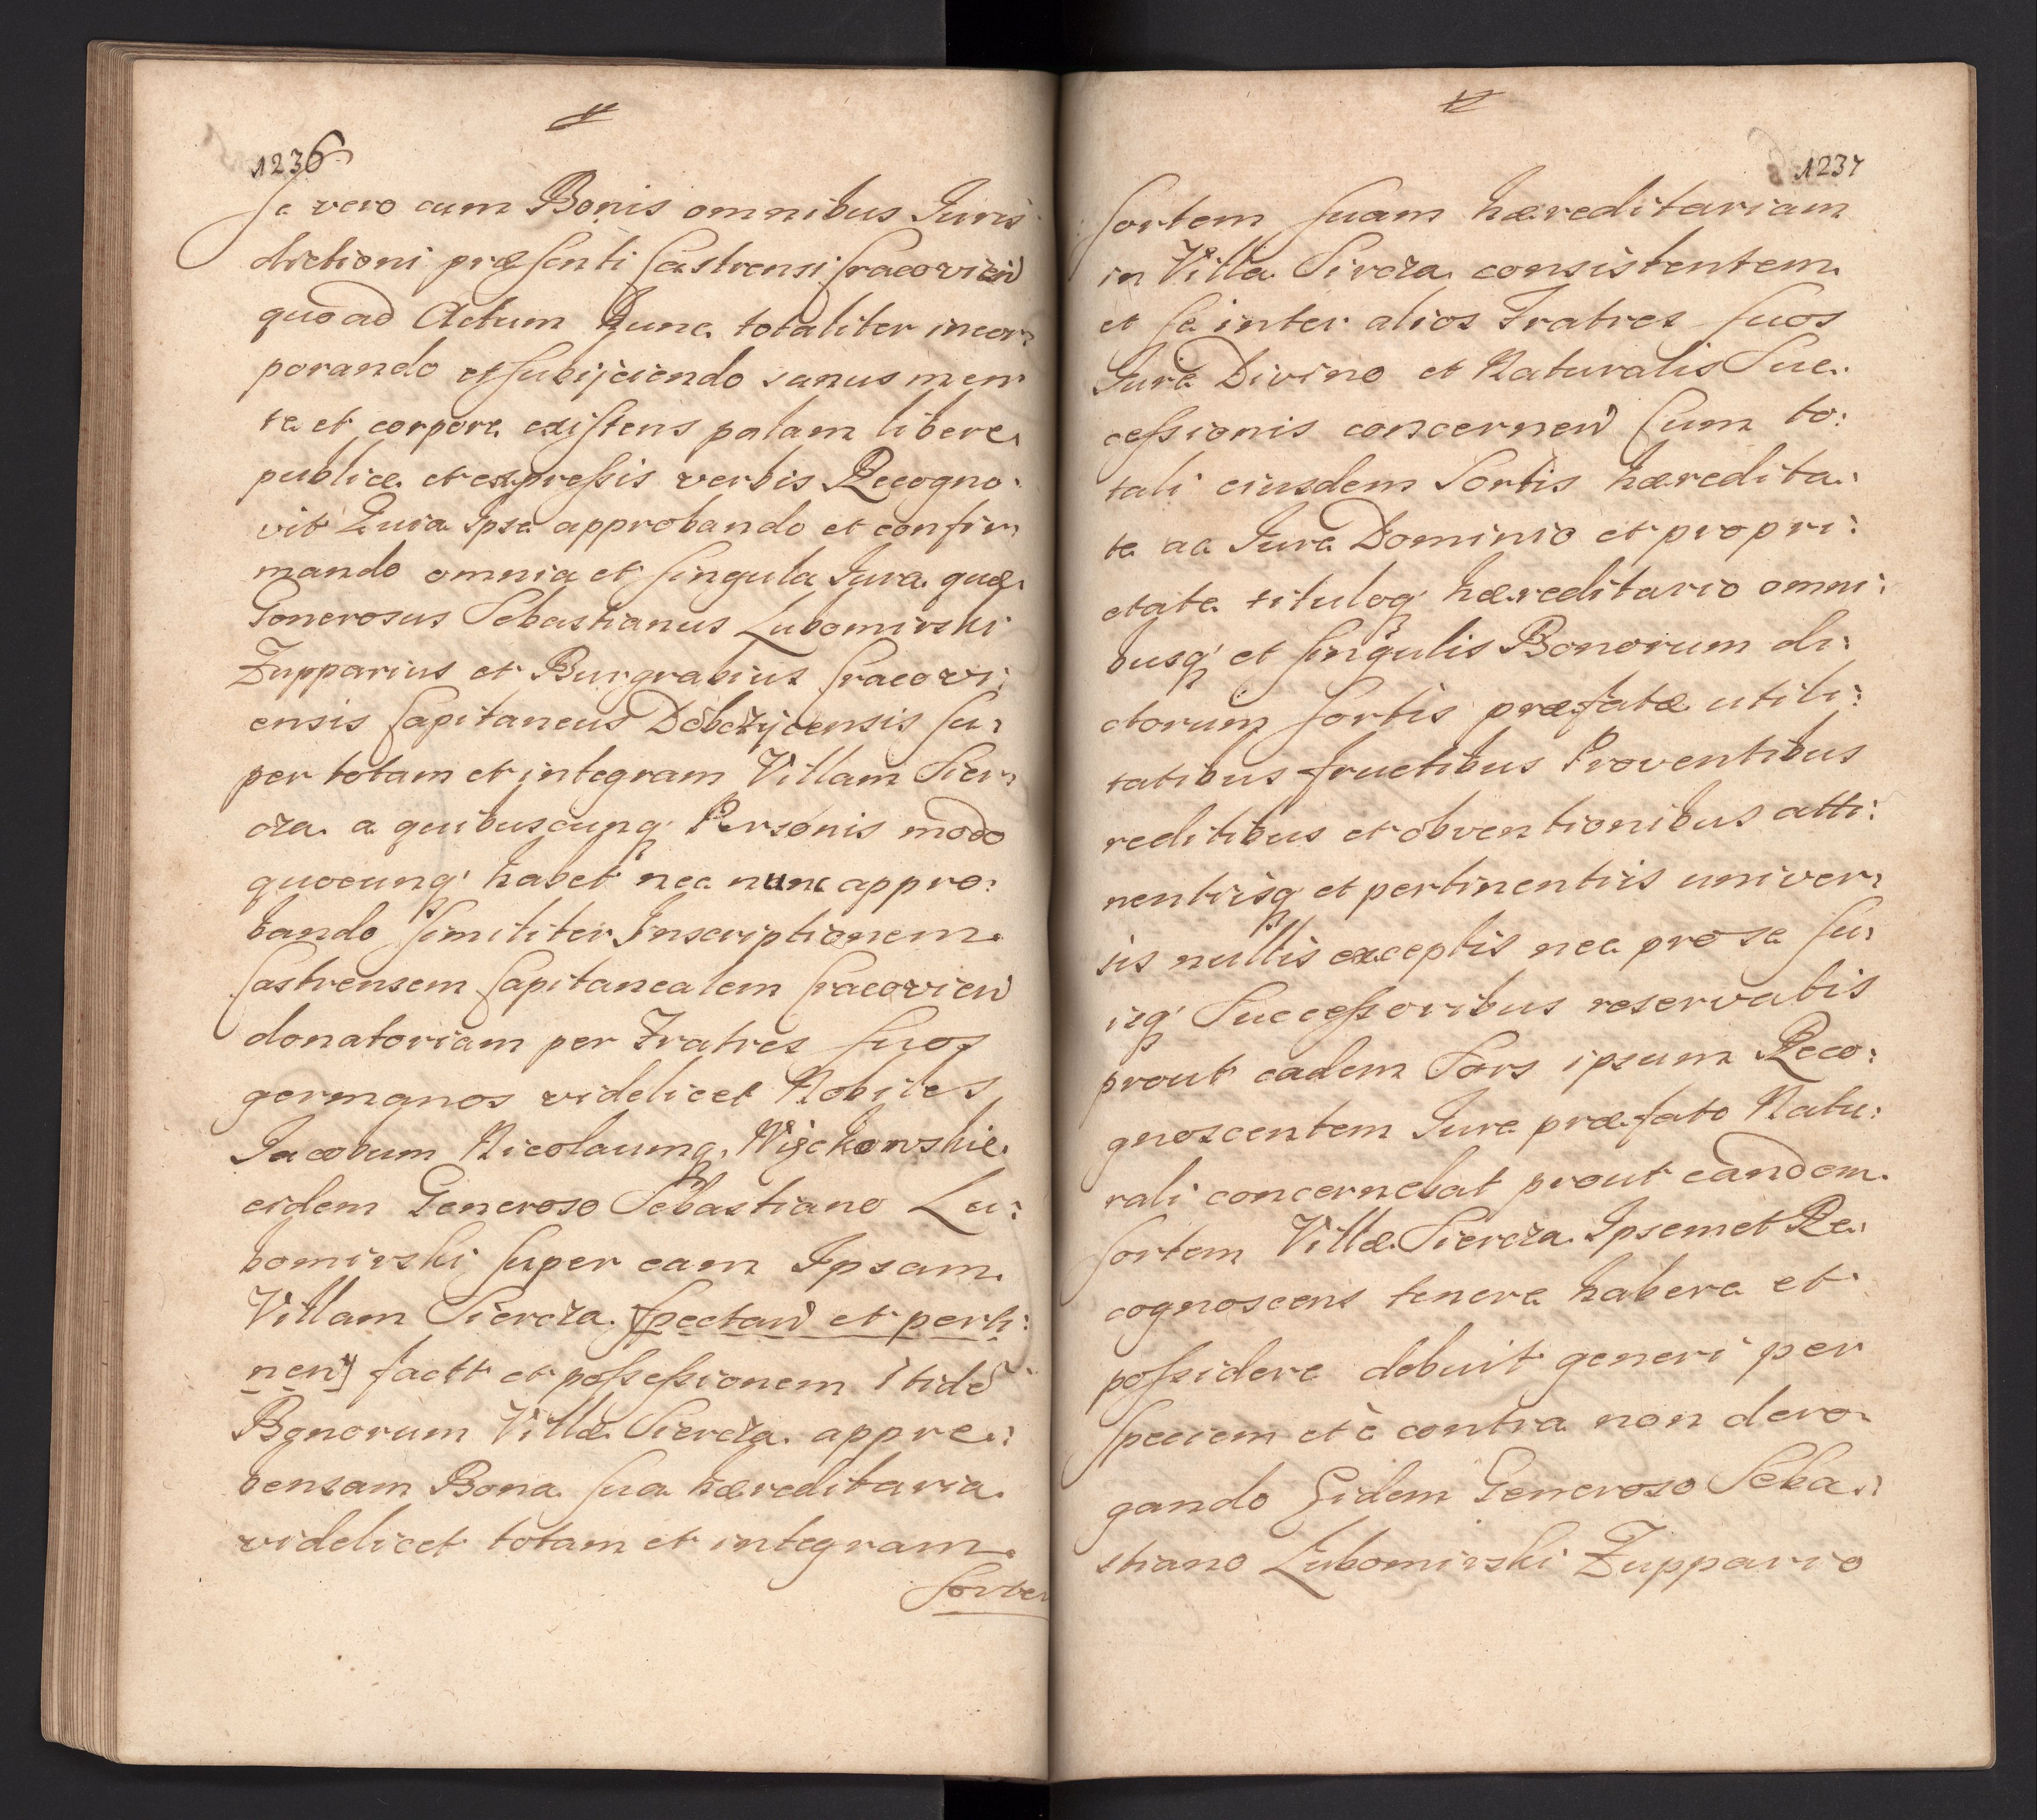 1236
se vero cum Bonis omnibus Juris
dictioni præsenti Castrensi Cracovien
quoad Actum hunc totaliter incor:
porando et subijciendo sanus men
te et corpore existens palam libere
publice et expressis verbis Recogno:
vit Quia Ipse approbando et confir:
mando omnia et singula Jura quæ
Generosus Sebastianus Lubomirski
Zupparius et Burgrabius Cracovi:
ensis Capitaneus Dobczycensis su:
per totam et integram Villam Sier:
cza a quibuscunq Personis modo
quocunq habet nec nunc appro:
bando similiter Inscriptionem
Castrensem Capitanealem Cracovien
donatoriam per Fratres suos
germanos videlicet Nobiles
Jacobum Nicolaumq Wijckowskie
eidem Generoso Sebastiano Lu:
bomirski super eam Ipsam
Villam Siercza spectan et perti:
nen] factt et possessionem itidē
Bonorum Villæ Siercza appre:
hensam Bona sua hæreditaria
videlicet totam et integram
Sortem
1237
sortem suam hæreditariam
in Villa Siercza consistentem
et se inter alios Fratres suos
Jure Divino et Naturalis Suc:
cessionis concernen Cum to:
tali eiusdem Sortis hæredita:
te ac Jure Dominio et propri:
etate tituloq hæreditario omni:
busq et singulis Bonorum di:
ctorum sortis præfatæ utili:
tatibus fructibus Proventibus
reditibus et obventionibus atti:
nentiisq et pertinentiis univer:
sis nullis exceptis nec pro se su:
isq Successoribus reservatis
prout eadem Sors ipsum Reco:
gnoscentem Jure præfato Natu:
rali concernebat prout eandem
sortem Villæ Siercza Ipsemet Re:
cognoscens tenere habere et
possidere debuit generi per
speciem et è contra non dero:
gando Eidem Generoso Seba:
stiano Lubomirski Zuppario